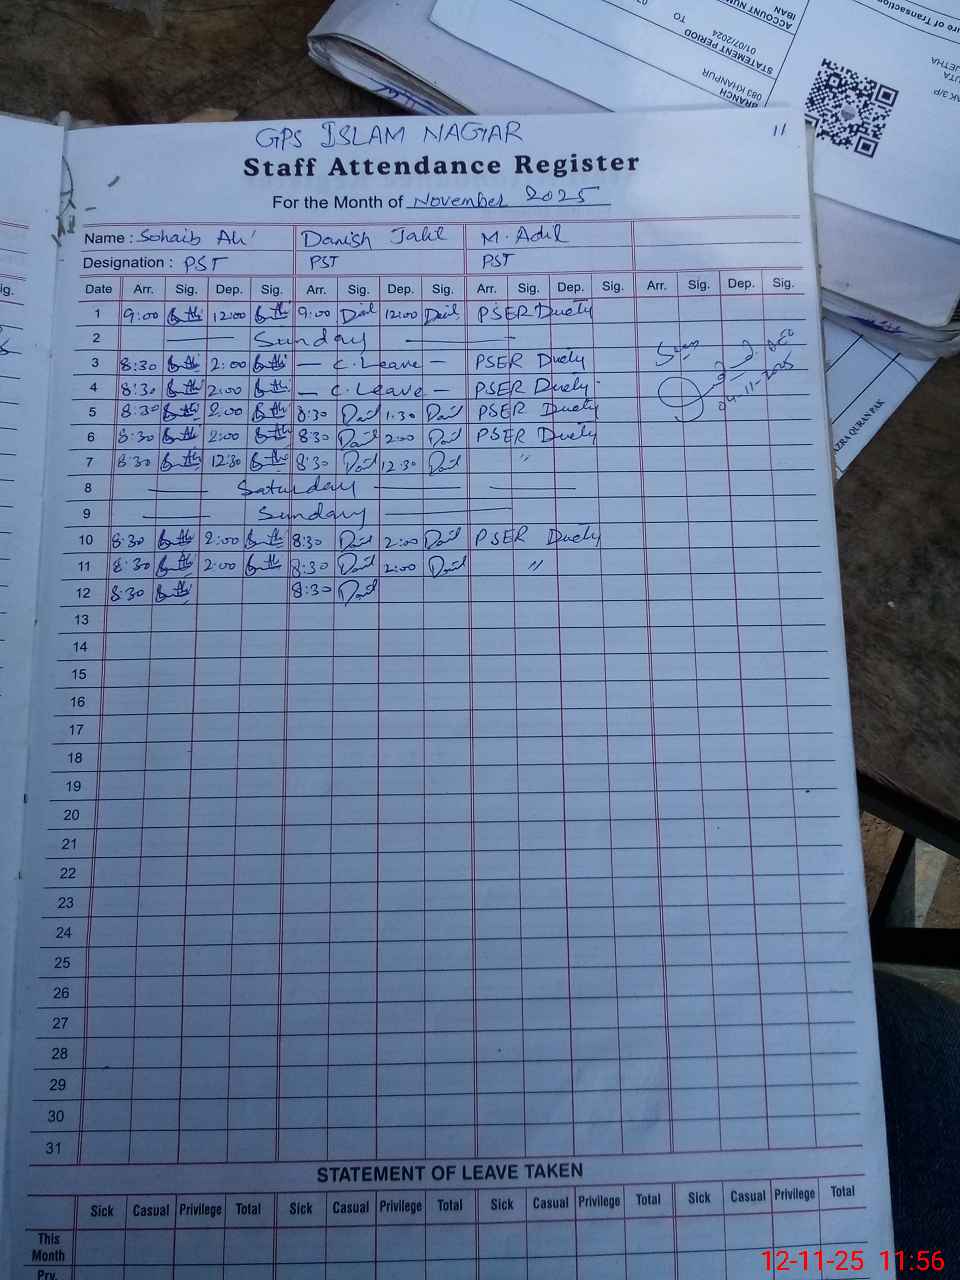 ACCOUNT NUM
IBAN
STATEMENT PERIOD
01/07/2024
TO
BRANCH
083 KHANPUR
ure of Transaction
UTA
JETHA
AK 3/P
GPS ISLAM NAGAR
11
Staff Attendance Register
For the Month of November 2025
Name : Sohaib Ali Danish Jalil M. Adil
Designation : PST PST PST
Date Arr. Sig. Dep. Sig. Arr. Sig. Dep. Sig. Arr. Sig. Dep. Sig. Arr. Sig. Dep. Sig.
1 9:00 12:00 9:00 12:00 PSER Duety
2 Sunday
3 8:30 2:00 C. Leave PSER Duety
4 8:30 2:00 C. Leave PSER Duety
04-11-2025
5 8:30 2:00 8:30 1:30 PSER Duety
6 8:30 2:00 8:30 2:00 PSER Duety
7 8:30 12:30 8:30 12:30 "
8 Saturday
9 Sunday
10 8:30 2:00 8:30 2:00 PSER Duety
11 8:30 2:00 8:30 2:00 "
12 8:30 8:30
13
14
15
16
17
18
19
20
21
22
23
24
25
26
27
28
29
30
31
ZRA QURAN PAK
STATEMENT OF LEAVE TAKEN
Sick Casual Privilege Total Sick Casual Privilege Total Sick Casual Privilege Total Sick Casual Privilege Total
This
Month
Prv.
12-11-25 11:56